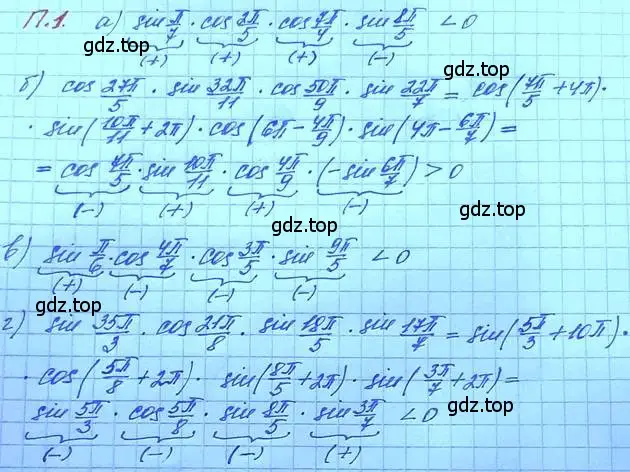 П.1. а) sin π/7 · cos 2π/5 · cos 7π/4 · sin 8π/5 < 0
(+) (+) (+) (-)
gdz.top gdz.top
б) cos 27π/5 · sin 32π/11 · cos 50π/9 · sin 22π/7 = cos(7π/5 + 4π) ·
· sin(10π/11 + 2π) · cos(6π - 4π/9) · sin(4π - 6π/7) =
gdz.top
= cos 7π/5 · sin 10π/11 · cos 4π/9 · (-sin 6π/7) > 0
(-) (+) (+) (-)
gdz.top gdz.top
в) sin π/6 · cos 4π/7 · cos 3π/5 · sin 9π/5 < 0
(+) (-) (-) (-)
gdz.top gdz.top
г) sin 35π/3 · cos 21π/8 · sin 18π/5 · sin 17π/7 = sin(5π/3 + 10π) ·
· cos(5π/8 + 2π) · sin(8π/5 + 2π) · sin(3π/7 + 2π) =
gdz.top gdz.top
sin 5π/3 · cos 5π/8 · sin 8π/5 · sin 3π/7 < 0
(-) (-) (-) (+)